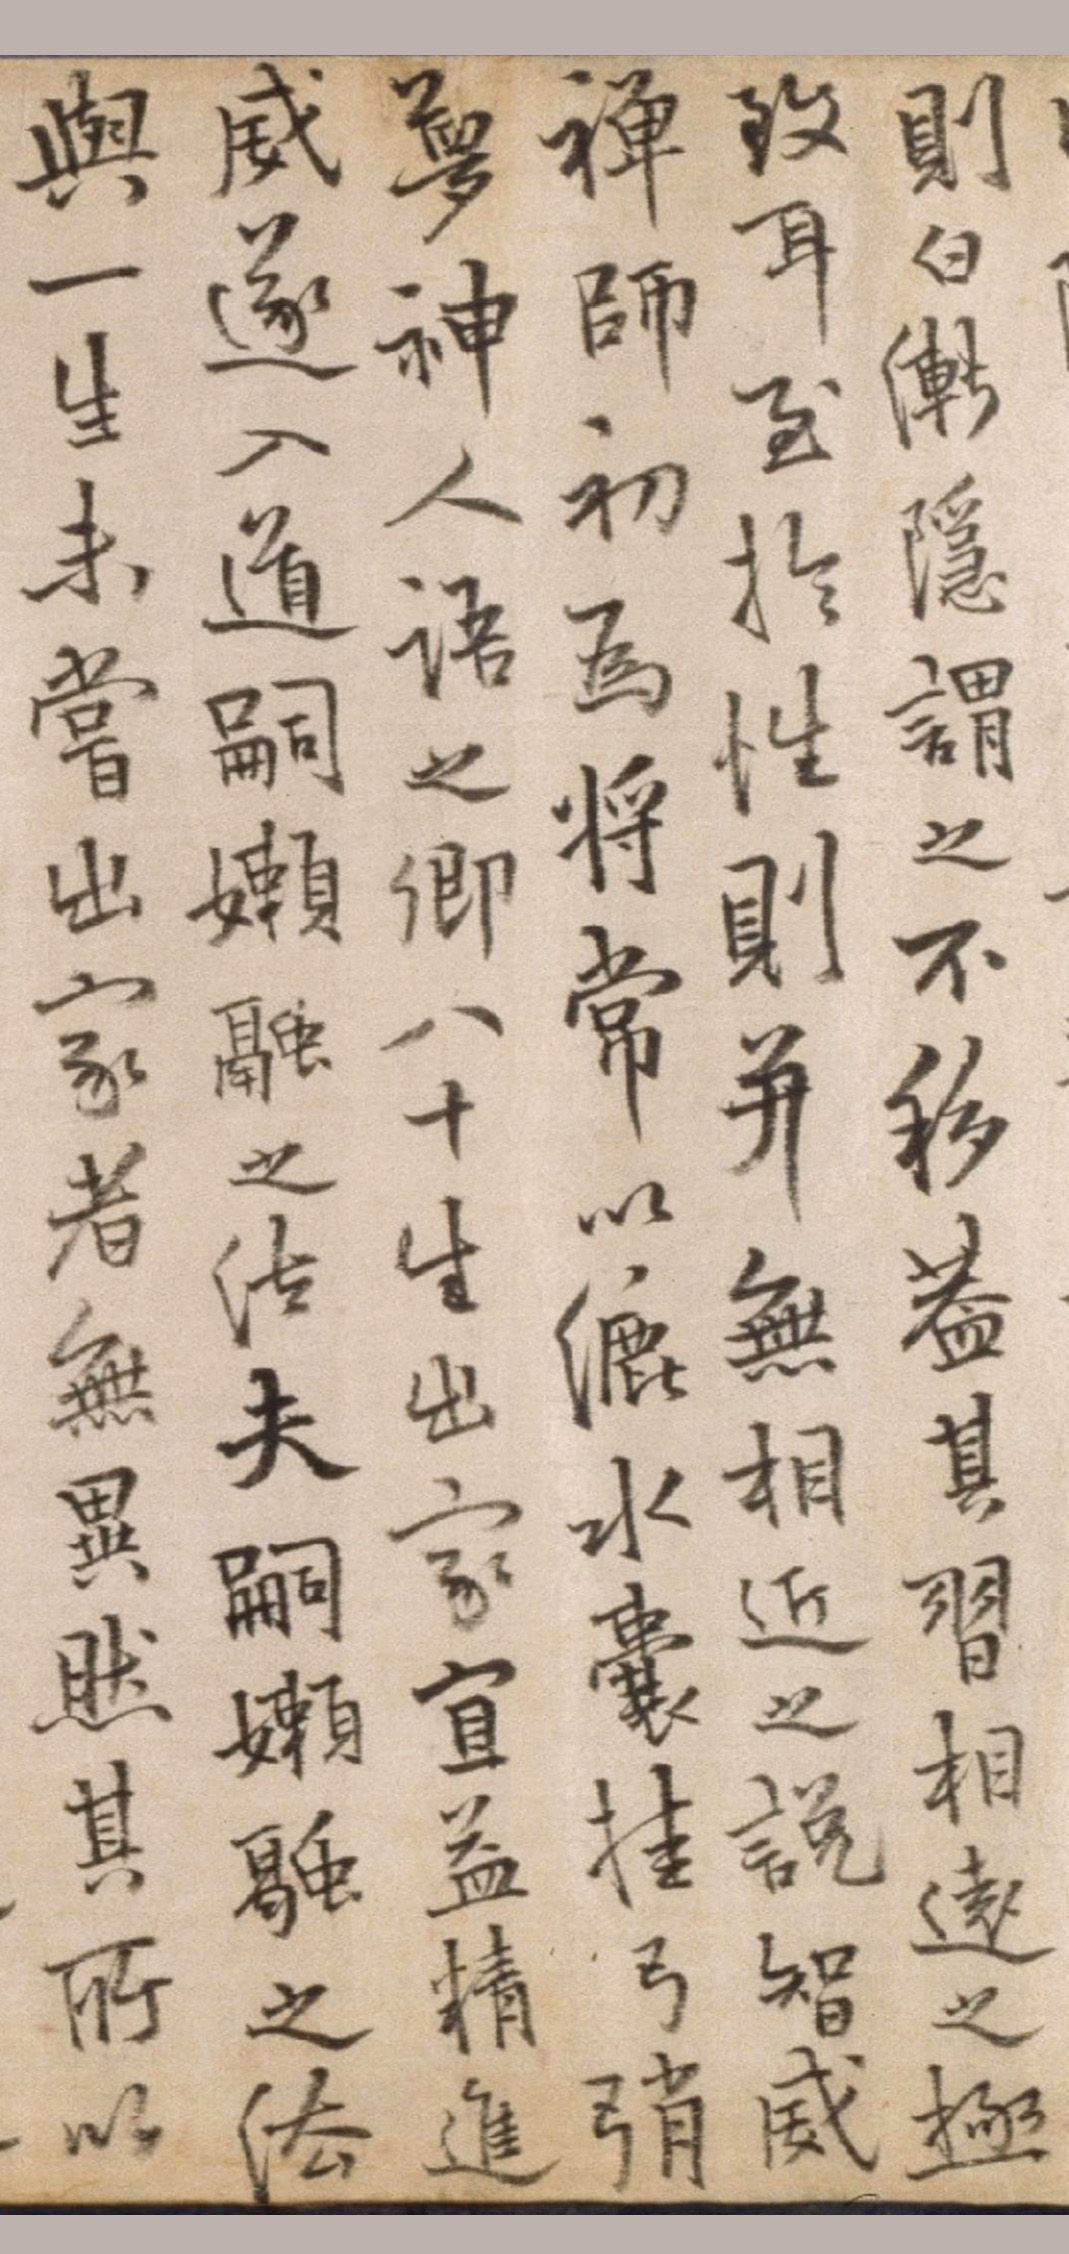 則白漸隱謂之不移蓋其習相遠之極
致耳至於性則并無相近之說智威
禪師初為將常以漉水囊挂弓弰
夢神人語之卿八十生出家宜益精進
威遂入道嗣嬾融之法夫嗣嬾融之法
與一生未嘗出家者無異然其所以